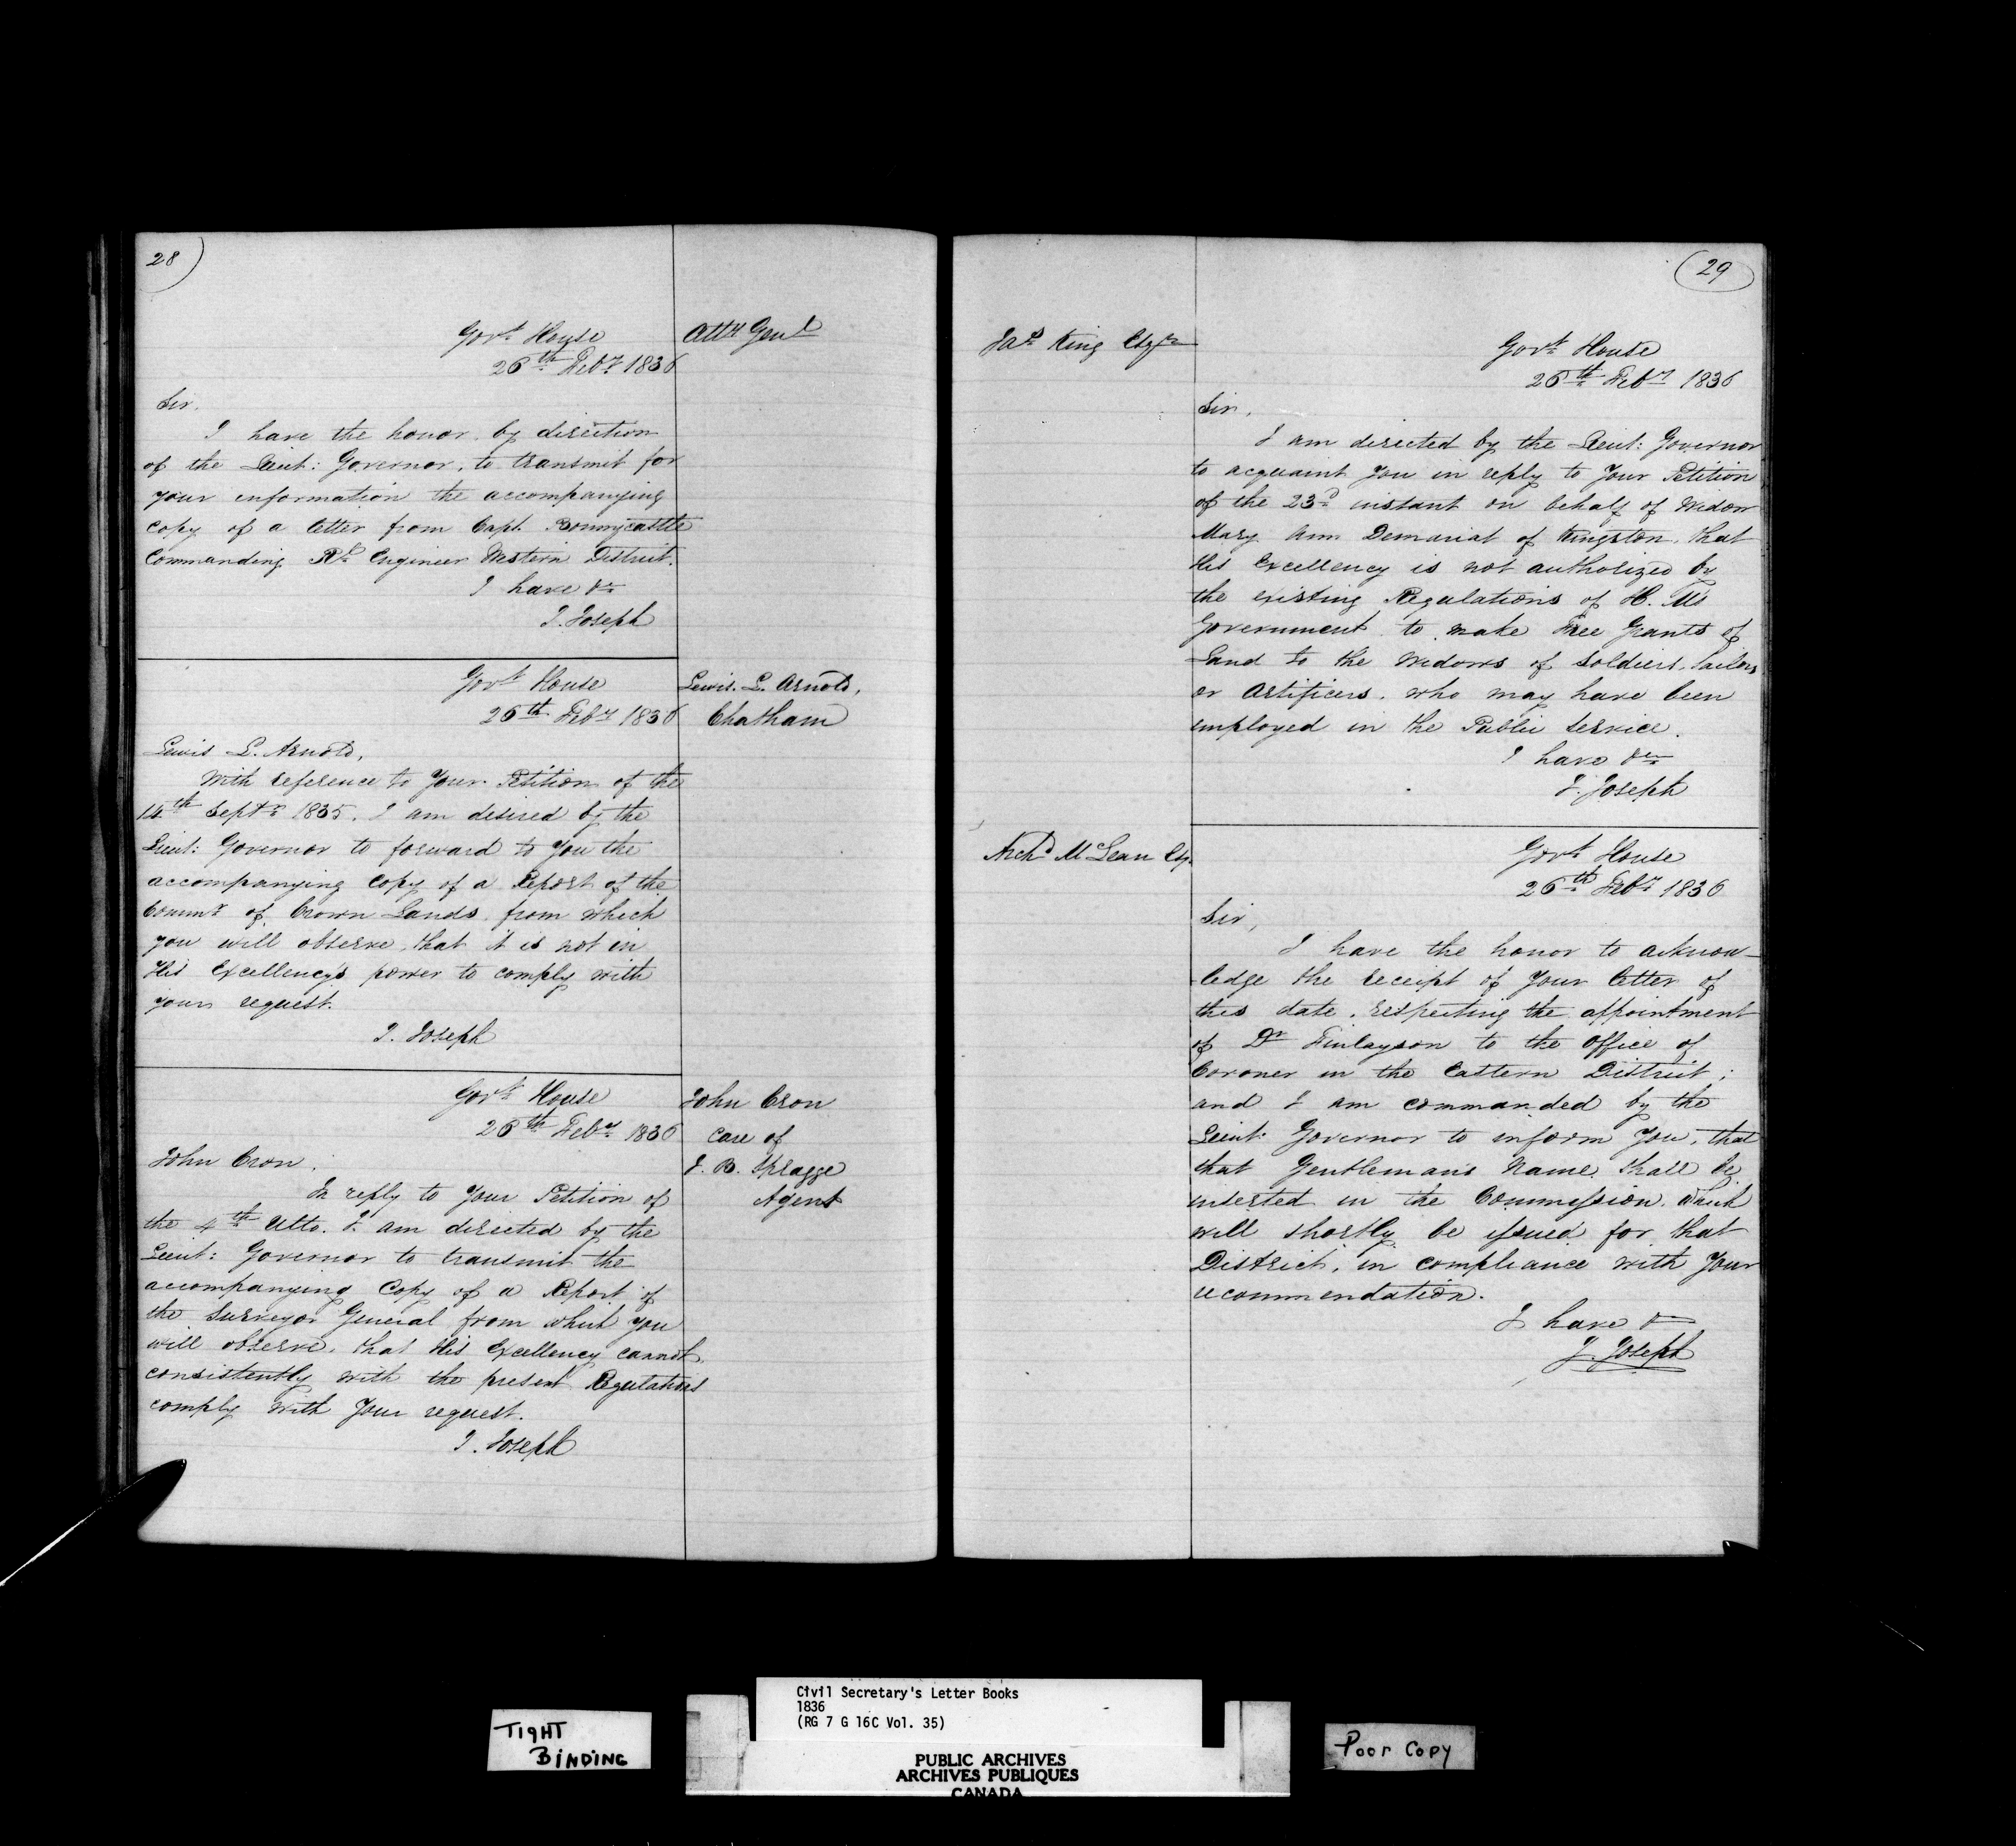 28)
Govt. House
Atty. Genl.
26th Feby. 1836
Sir.
I have the honor, by direction
of the Lieut: Governor, to transmit for
your information the accompanying
copy of a letter from Capt. Bonnycastle
Commanding Rl. Engineer Western District.
I have &c
J. Joseph
Govt. House
26th Feby. 1836
Lewis. L. Arnold,
Chatham
Lewis L. Arnold,
With reference to Your Petition of the
14th Septr. 1835, I am desired by the
Lieut: Governor to forward to You the
accompanying Copy of a Report of the
Commr. of Crown Lands, from which
you will observe, that it is not in
His Excellency's power to comply with
your request.
J. Joseph
Govt. House
26th Feby. 1836
John Cron
Care of
J. B. Spragge
Agent
John Cron,
In reply to Your Petition of
the 4th Ulto. I am directed by the
Lieut: Governor to transmit the
accompanying Copy of a Report of
the Surveyor General from which you
will observe, that His Excellency cannot,
consistently with the present Regulations
comply with Your request.
J. Joseph
(29)
Jas. King Esqre
Govt. House
26th Feby. 1836
Sir,
I am directed by the Lieut: Governor
to acquaint You in reply to Your Petition
of the 23d. instant on behalf of Widow
Mary Ann Demariat of Kingston, that
His Excellency is not authorized by
the existing Regulations of H. Ms
Government to make Free Grants of
Land to the Widows of Soldiers, Sailors
or Artificers, who may have been
employed in the Public Service.
I have &c
J. Joseph
Archd McLean Esq.
Govt. House
26th Feby. 1836
Sir,
I have the honor to acknow-
ledge the receipt of Your letter of
this date, respecting the appointment
of Dr Finlayson to the Office of
Coroner in the Eastern District;
and I am commanded by the
Lieut: Governor to inform You, that
that Gentleman's Name shall be
inserted in the Commission, which
will shortly be issued for that
District, in compliance with Your
recommendation.
I have &c
J. Joseph
Civil Secretary's Letter Books
1836
(RG 7 G 16C Vol. 35)
TIGHT
BINDING
PUBLIC ARCHIVES
ARCHIVES PUBLIQUES
CANADA
Poor Copy